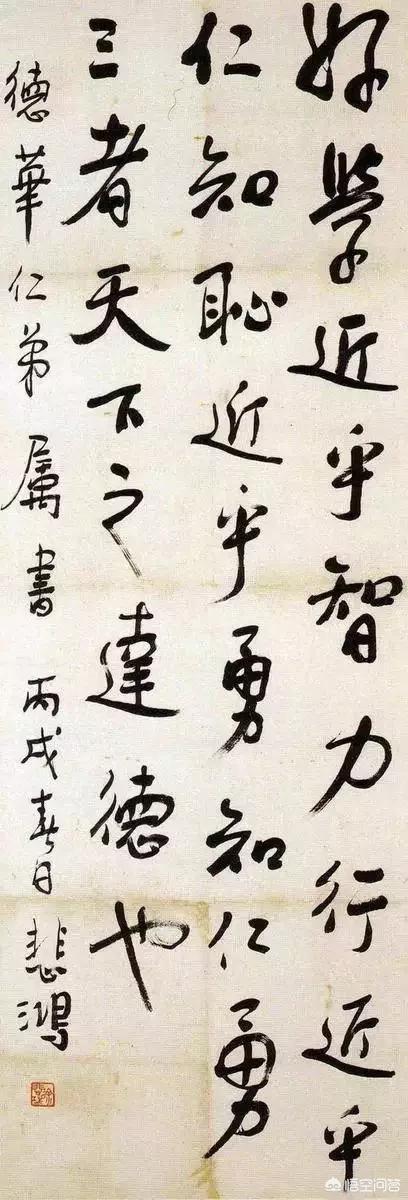 好學近乎智力行近乎
仁知恥近乎勇知仁勇
三者天下之達德也
德華仁弟属書 丙戌春日 悲鴻
悟空问答